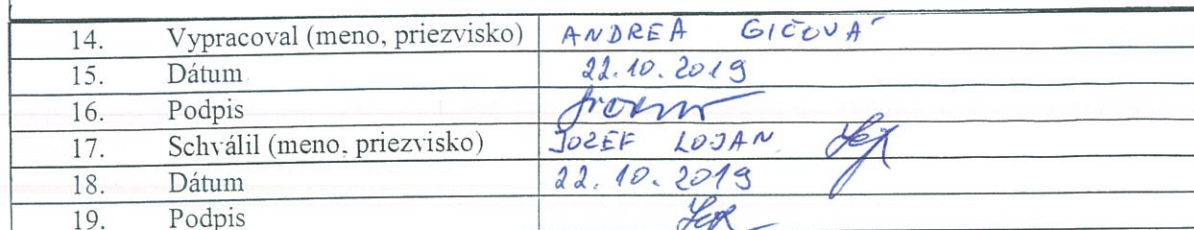 14. Vypracoval (meno, priezvisko) ANDREA GIČOVÁ
15. Dátum 22.10.2019
16. Podpis
17. Schválil (meno, priezvisko) JOZEF LOJAN
18. Dátum 22.10.2019
19. Podpis